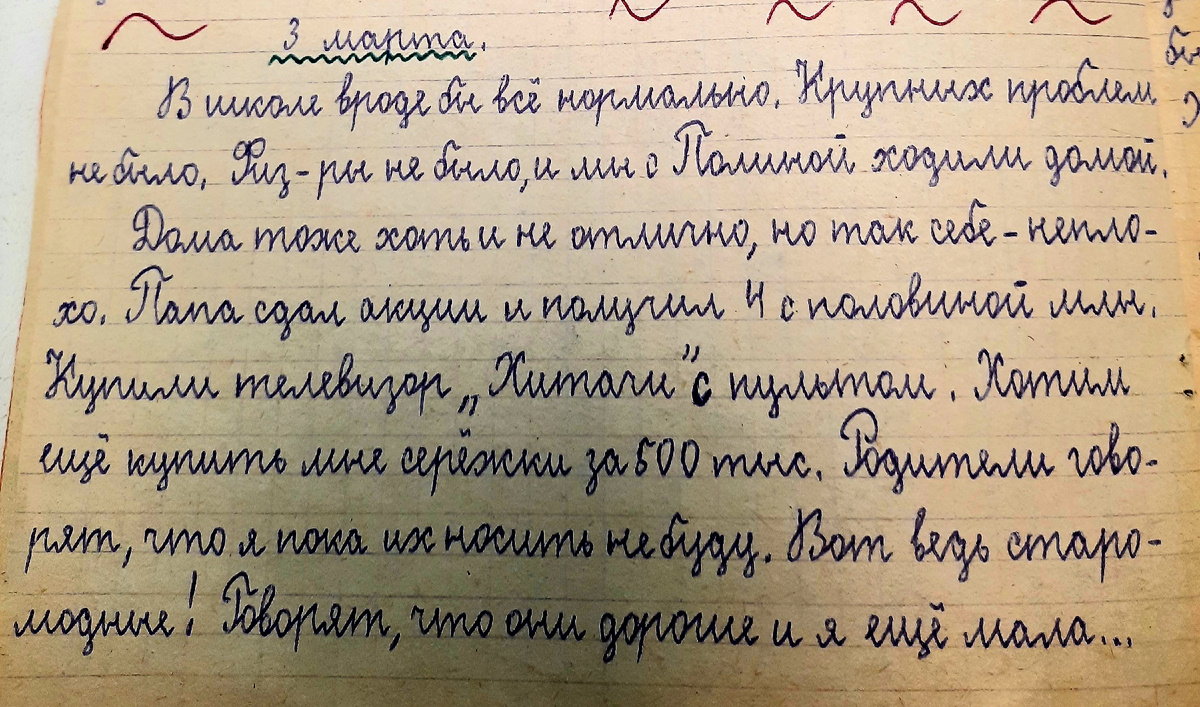 3 марта.
В школе вроде бы всё нормально. Крупных проблем
не было. Физ-ры не было, и мы с Полиной ходили домой.
Дома тоже хоть и не отлично, но так себе - непло-
хо. Папа сдал акции и получил 4 с половиной млн.
Купили телевизор „Хитачи” с пультом. Хотим
ещё купить мне серёжки за 500 тыс. Родители гово-
рят, что я пока их носить не буду. Вот ведь старо-
модные! Говорят, что они дорогие и я ещё мала...